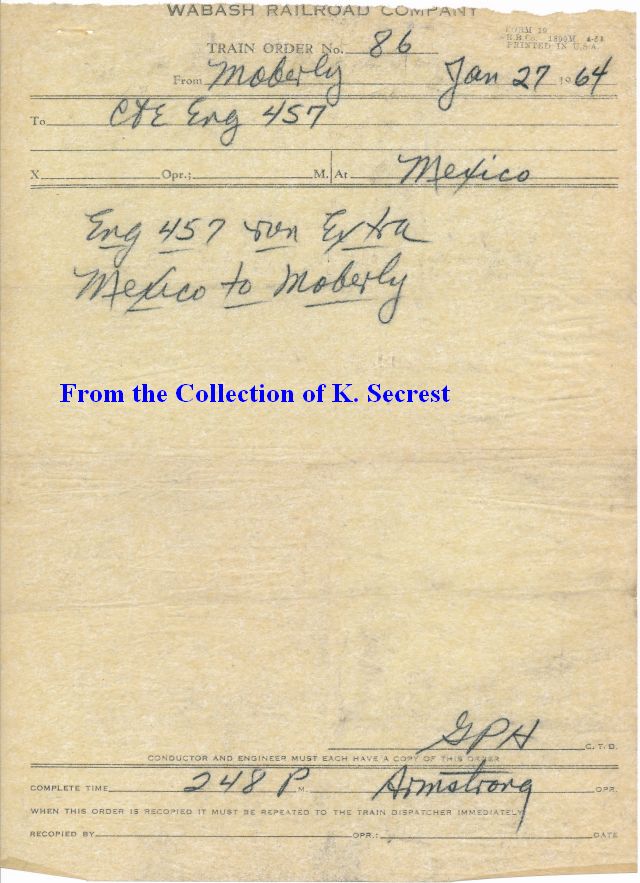 WABASH RAILROAD COMPANY
FORM 19
TRAIN ORDER No. 86
PRINTED IN U.S.A.
From Moberly Jan 27 1964
To C&E Eng 457
X Opr.; M. At Mexico
Eng 457 run Extra
Mexico to Moberly
From the Collection of K. Secrest
GPH C. T. D.
CONDUCTOR AND ENGINEER MUST EACH HAVE A COPY OF THIS ORDER
COMPLETE TIME 248 P M. Armstrong OPR.
WHEN THIS ORDER IS RECOPIED IT MUST BE REPEATED TO THE TRAIN DISPATCHER IMMEDIATELY
RECOPIED BY OPR.: DATE